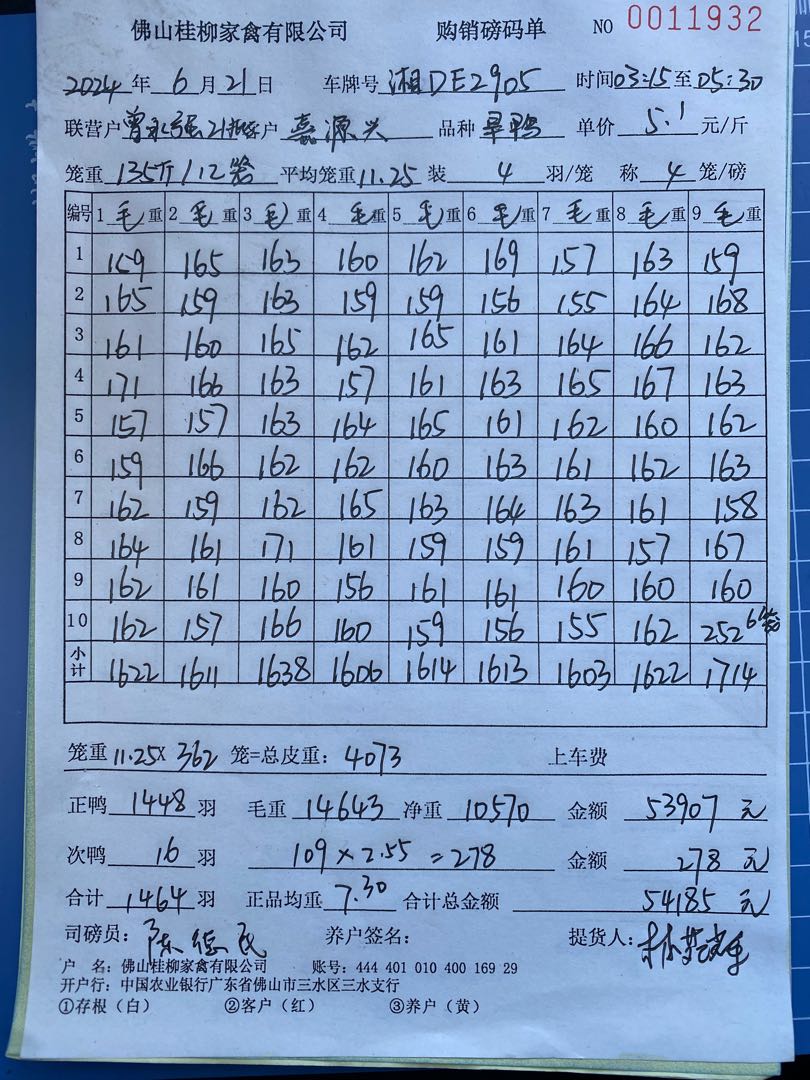 佛山桂柳家禽有限公司 购销磅码单 NO 0011932
2024 年 6 月 21 日 车牌号 湘DE2905 时间 03:15 至 05:30
联营户 曾永强21批 客户 嘉源兴 品种 旱鸭 单价 5.1 元/斤
笼重 135斤/12笼 平均笼重 11.25 装 4 羽/笼 称 4 笼/磅
编号 1 毛 重 2 毛 重 3 毛 重 4 毛 重 5 毛 重 6 毛 重 7 毛 重 8 毛 重 9 毛 重
1 159 165 163 160 162 169 157 163 159
2 165 159 163 159 159 156 155 164 168
3 161 160 165 162 165 161 164 166 162
4 171 166 163 157 161 163 165 167 163
5 157 157 163 164 165 161 162 160 162
6 159 166 162 162 160 163 161 162 163
7 162 159 162 165 163 164 163 161 158
8 164 161 171 161 159 159 161 157 167
9 162 161 160 156 161 161 160 160 160
10 162 157 166 160 159 156 155 162 252 6笼
小计 1622 1611 1638 1606 1614 1613 1603 1622 1714
笼重 11.25× 362 笼=总皮重: 4073 上车费
正鸭 1448 羽 毛重 14643 净重 10570 金额 53907 元
次鸭 16 羽 109×2.55=278 金额 278 元
合计 1464 羽 正品均重 7.30 合计总金额 54185 元
司磅员: 陈德民 养户签名: 提货人:
户 名: 佛山桂柳家禽有限公司 账号: 444 401 010 400 169 29
开户行: 中国农业银行广东省佛山市三水区三水支行
①存根(白) ②客户(红) ③养户(黄)